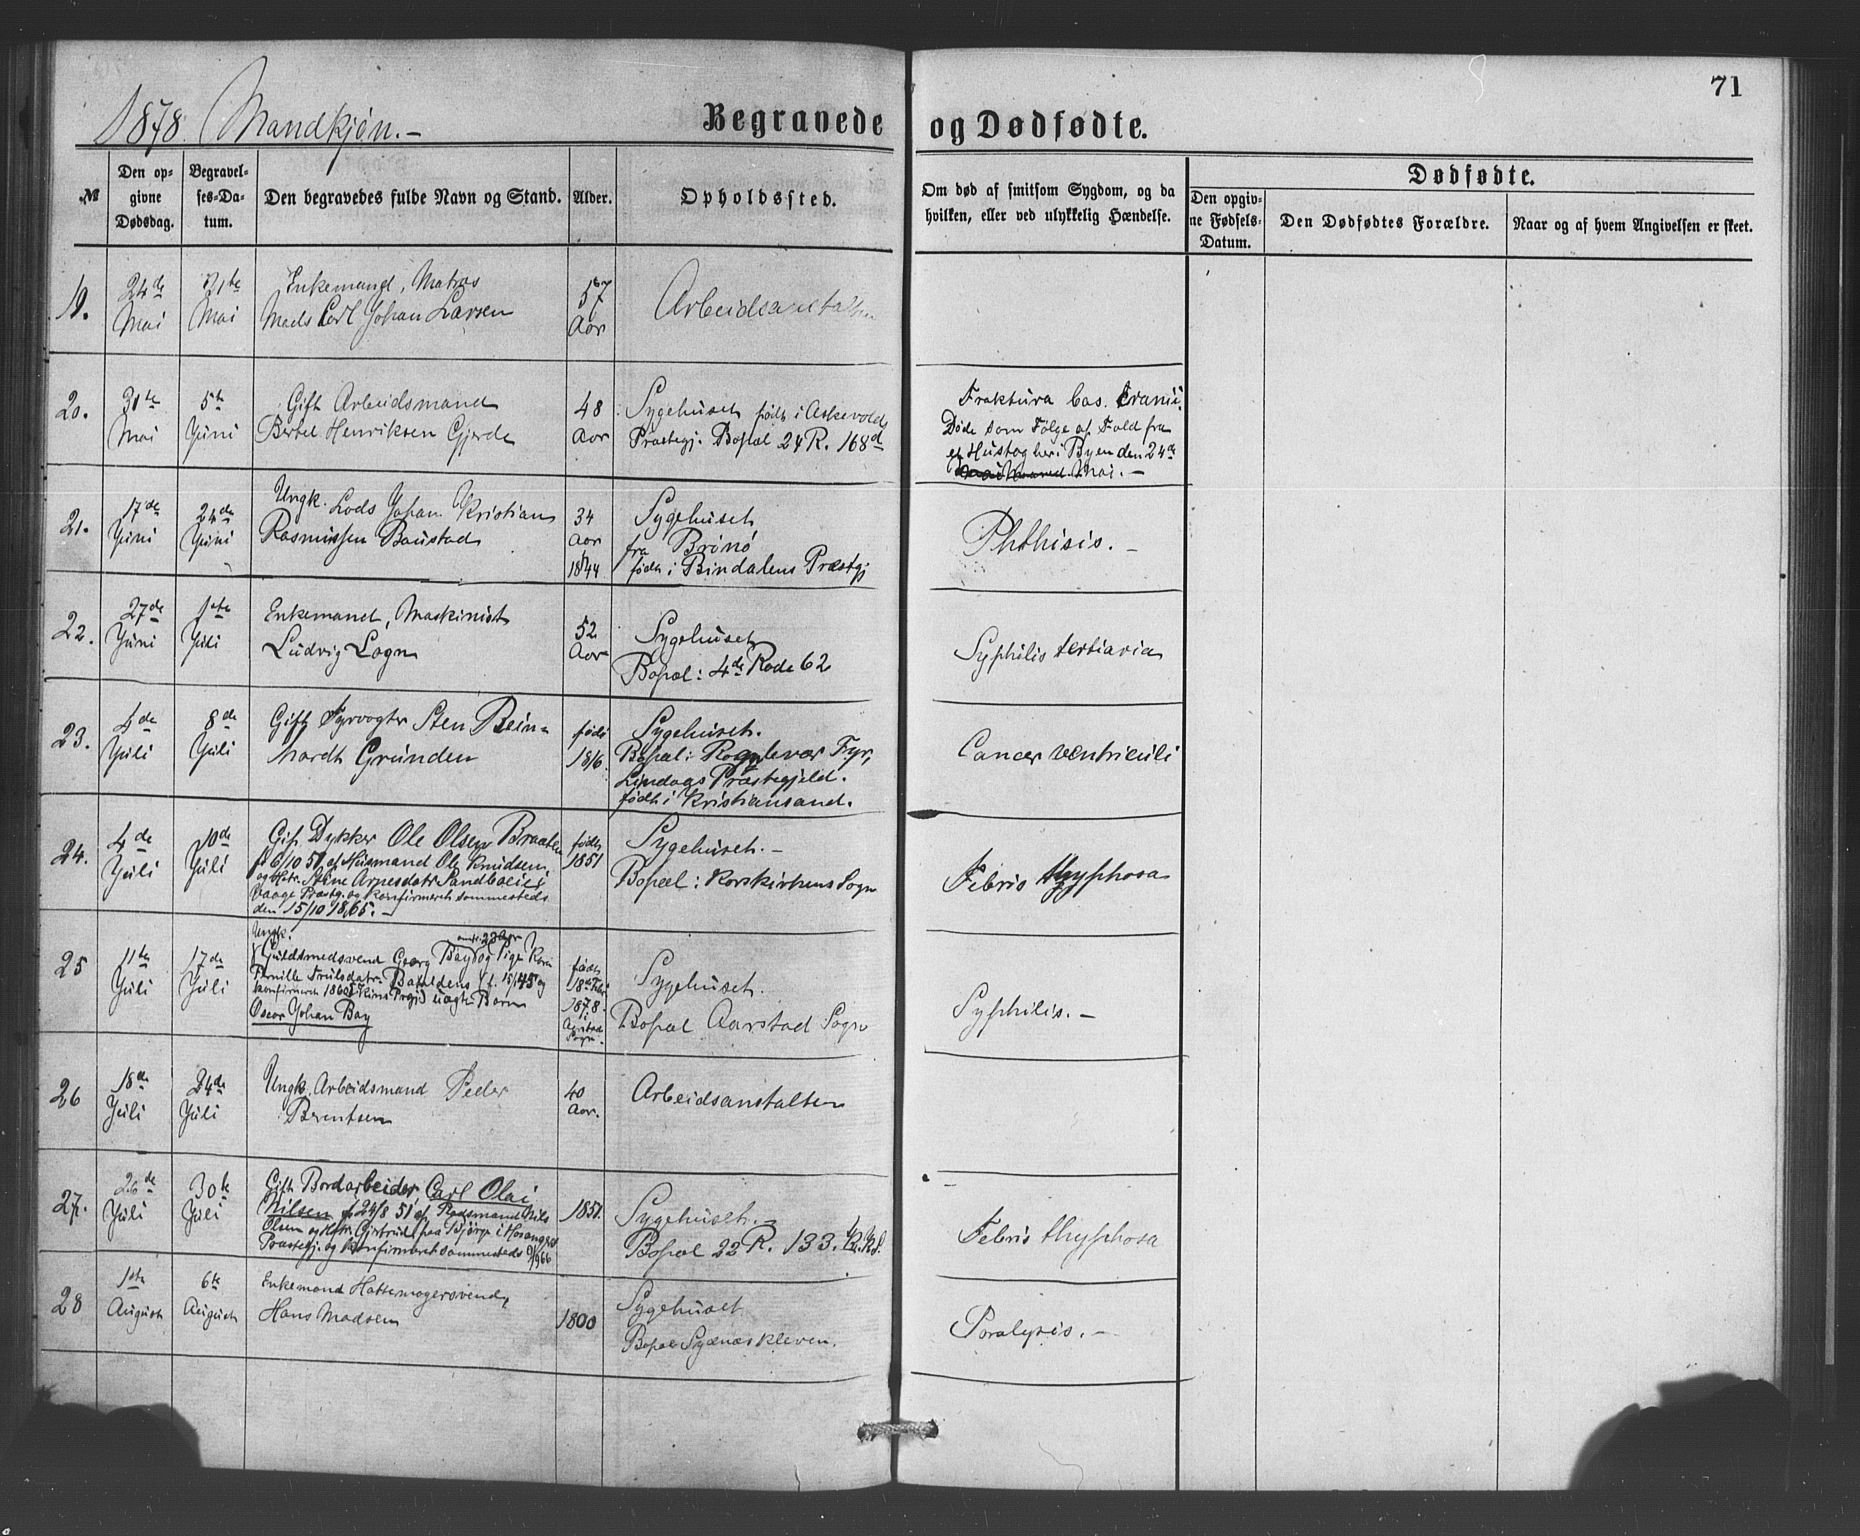 71
1878. Mandkjøn.-
Begravede og Dødfødte.
№
Den op-
givne
Dødsdag.
Begravel-
ses-Da-
tum.
Den begravedes fulde Navn og Stand.
Alder.
Opholdssted.
Om død af smitsom Sygdom, og da
hvilken, eller ved ulykkelig Hændelse.
Dødfødte.
Den opgiv-
ne Fødsels-
Datum.
Den Dødfødtes Forældre.
Naar og af hvem Angivelsen er skeet.
19.
24de
Mai
31te
Mai
Enkemand, Matros
Mads Carl Johan Larsen
57
Aar
Arbeidsanstalten
20.
30te
Mai
5te
Juni
Gift Arbeidsmand
Bertel Henriksen Gjerde
48
Aar
Sygehuset født i Askevold
Præstegj. Bopæl 24 R. 168d
Fraktura bas. Cranii.
Døde som Følge af Fald fra
et Hustag her i Byen den 24de
Mai. -
21.
17de
Juni
24de
Juni
Ungk. Lods Johan Kristian
Rasmussen Baustad
34
Aar
1844
Sygehuset
fra Brønø
født i Bindalens Præstgj
Phthisis. -
22.
27de
Juni
1ste
Juli
Enkemand, Maskinist
Ludvig Logn
52
Aar
Sygehuset
Bopæl: 4de Rode 62
Syphilis tertiaria
23.
4de
Juli
8de
Juli
Gift Fyrvogter Sten Bein-
hardt Gründen
født
1816.
Sygehuset.
Bopæl: Fyr,
Lindaas Præstegjeld.
født i Kristiansand.
Cancer ventriculi
24.
4de
Juli
10de
Juli
Gift Dykker Ole Olsen Braaten
f. 6/10 51, af Husmand Ole Knudsen
og Hstr. Stine Arnesdatr Sandboeiet
Vaage Præstg. og konfirmeret sammesteds
den 15/10 1865. -
født
1851
Sygehuset. -
Bopæl: Korskirkens Sogn
Febris thyphosa
25
11te
Juli
17de
Juli
Ungk.
Guldsmedsvend Georg Bay og Pige Karen
Pernille Trulsdatr. f. 15/1 45 og
konfirmeret 1860 i Kins Prgjd uægte Barn
Oscar Johan Bay
født
18de Febr
1878.
i
Aarstad
Sogn.
Sygehuset.
Bopæl Aarstad Sogn
Syphilis. -
26
18de
Juli
24de
Juli
Ungk. Arbeidsmand Peder
Berentsen
40
Aar.
Arbeidsanstalten
27.
26de
Juli
30te
Juli
Gift Bordarbeider, Carl Olai
Nilsen f 24/8 51 af Nils
Olsen og Hstr. Gjertrud paa Bjørge i Hosanger
Præstegj. og konfirmeret sammesteds
1851.
Sygehuset. -
Bopæl 22 R. 133.
Febris thyphosa
28
1ste
August
6te
August
Enkemand Hattemagersvend,
Hans Madsen
1800
Sygehuset
Bopæl Sydnæskleven.
Paralysis. -